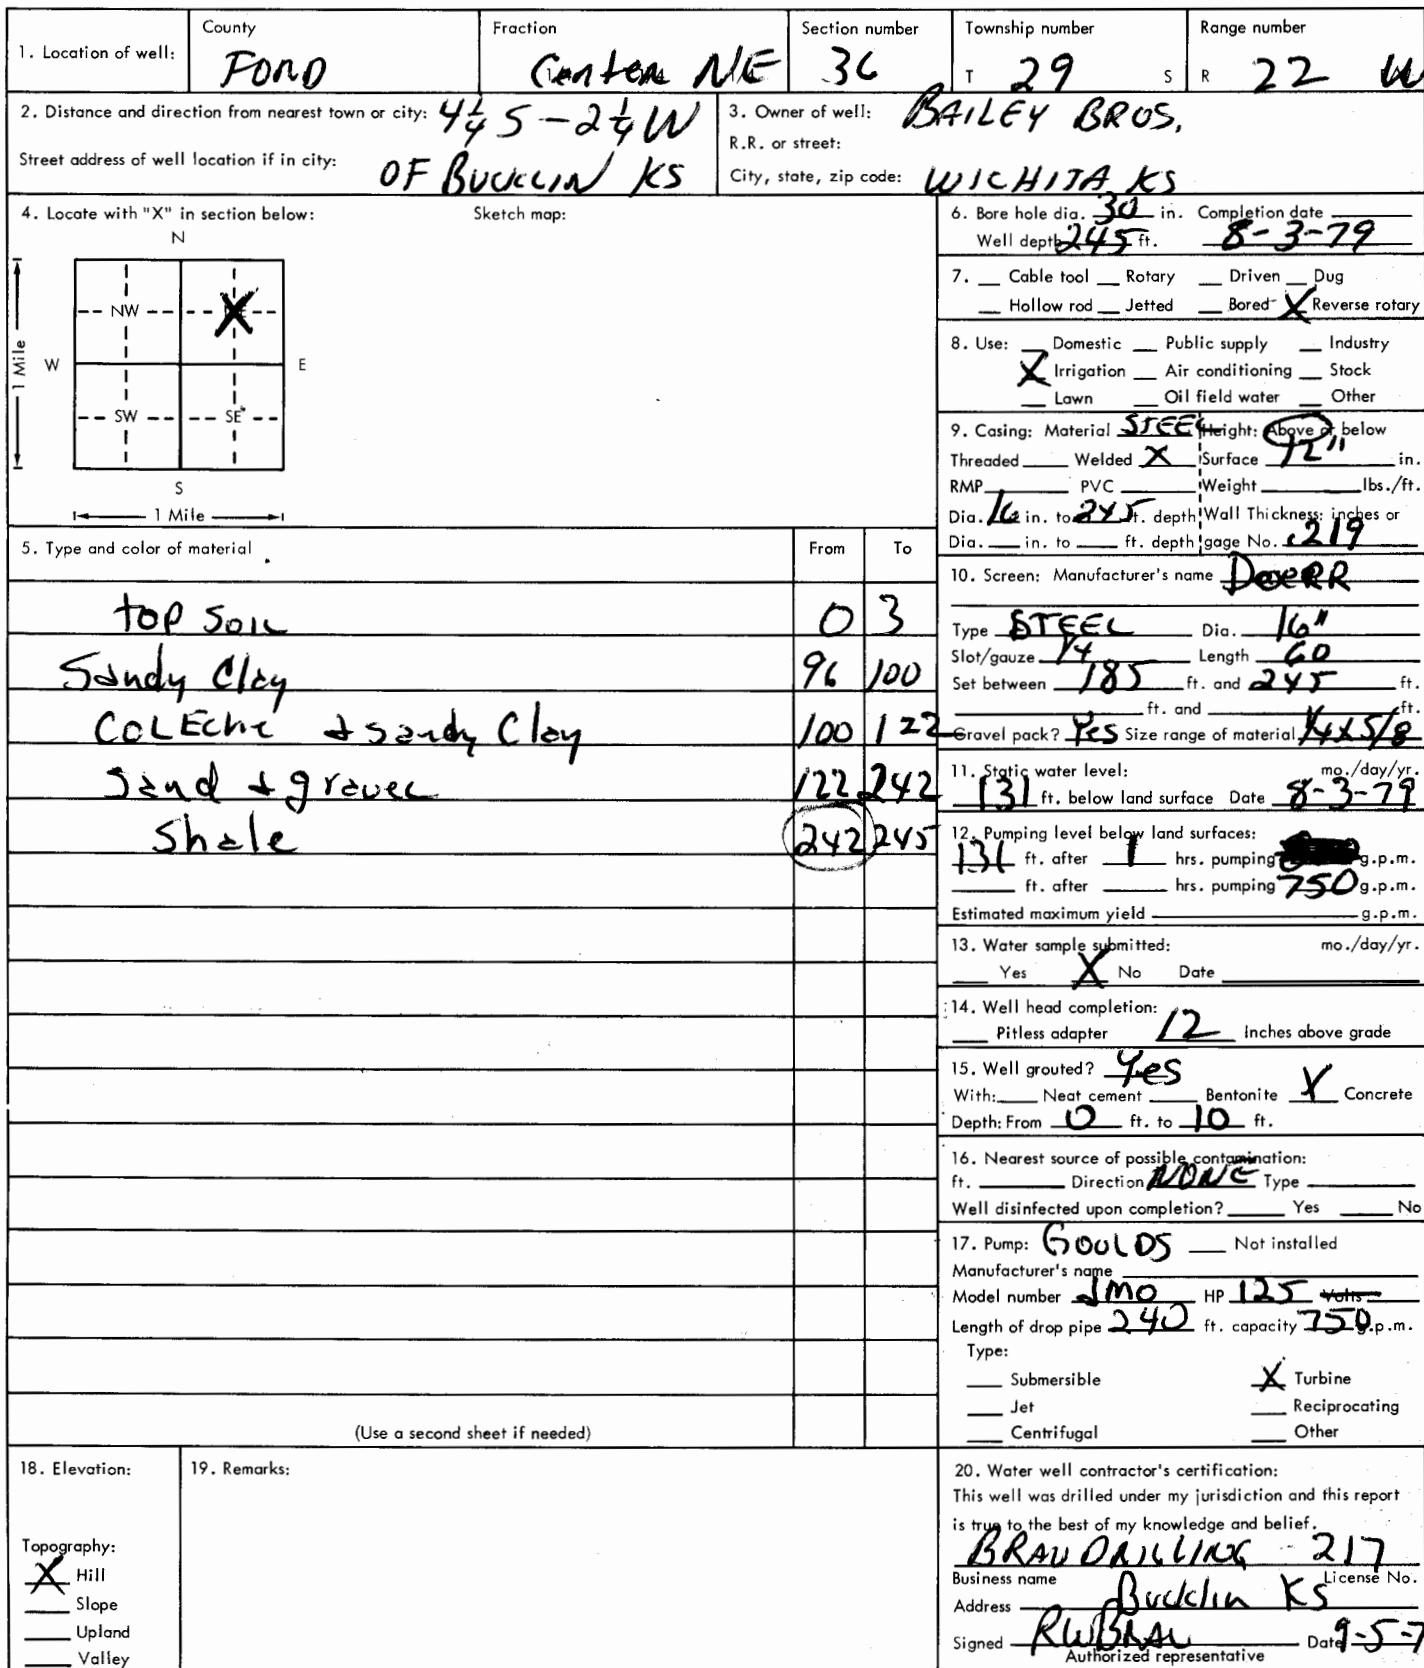 1. Location of well: County FORD Fraction Center NE Section number 36 Township number T 29 S Range number R 22 W
2. Distance and direction from nearest town or city: 4 1/4 S - 2 1/4 W
Street address of well location if in city: OF BUCKLIN KS
3. Owner of well: BAILEY BROS.
R.R. or street:
City, state, zip code: WICHITA KS
4. Locate with "X" in section below: Sketch map:
N
1 Mile
NW
W E
SW SE
S
1 Mile
5. Type and color of material From To
top soil 0 3
Sandy Clay 96 100
COLEche + sandy Clay 100 122
Sand + gravel 122 242
Shale 242 245
(Use a second sheet if needed)
6. Bore hole dia. 30 in. Completion date
Well depth 245 ft. 8-3-79
7. __ Cable tool __ Rotary __ Driven __ Dug
__ Hollow rod __ Jetted __ Bored X Reverse rotary
8. Use: __ Domestic __ Public supply __ Industry
X Irrigation __ Air conditioning __ Stock
__ Lawn __ Oil field water __ Other
9. Casing: Material STEEL Height: Above or below
Threaded ___ Welded X Surface 12" in.
RMP ___ PVC ___ Weight ___ lbs./ft.
Dia. 16 in. to 245 ft. depth Wall Thickness: inches or
Dia. ___ in. to ___ ft. depth gage No. .219
10. Screen: Manufacturer's name DoeRR
Type STEEL Dia. 16"
Slot/gauze 1/4 Length 60
Set between 185 ft. and 245 ft.
___ ft. and ___ ft.
Gravel pack? Yes Size range of material 1/4 x 5/8
11. Static water level: mo./day/yr.
131 ft. below land surface Date 8-3-79
12. Pumping level below land surfaces:
131 ft. after 1 hrs. pumping g.p.m.
___ ft. after ___ hrs. pumping 750 g.p.m.
Estimated maximum yield ___ g.p.m.
13. Water sample submitted: mo./day/yr.
___ Yes X No Date ___
14. Well head completion:
___ Pitless adapter 12 Inches above grade
15. Well grouted? Yes
With: ___ Neat cement ___ Bentonite X Concrete
Depth: From 0 ft. to 10 ft.
16. Nearest source of possible contamination:
ft. ___ Direction NONE Type ___
Well disinfected upon completion? ___ Yes ___ No
17. Pump: GOULDS ___ Not installed
Manufacturer's name ___
Model number HP 125 Volts
Length of drop pipe 240 ft. capacity 750 g.p.m.
Type:
___ Submersible X Turbine
___ Jet ___ Reciprocating
___ Centrifugal ___ Other
18. Elevation:
Topography:
X Hill
___ Slope
___ Upland
___ Valley
19. Remarks:
20. Water well contractor's certification:
This well was drilled under my jurisdiction and this report
is true to the best of my knowledge and belief.
BRAU DRILLING 217
Business name License No.
Address Bucklin KS
Signed RWBRAU Date 9-5-7
Authorized representative